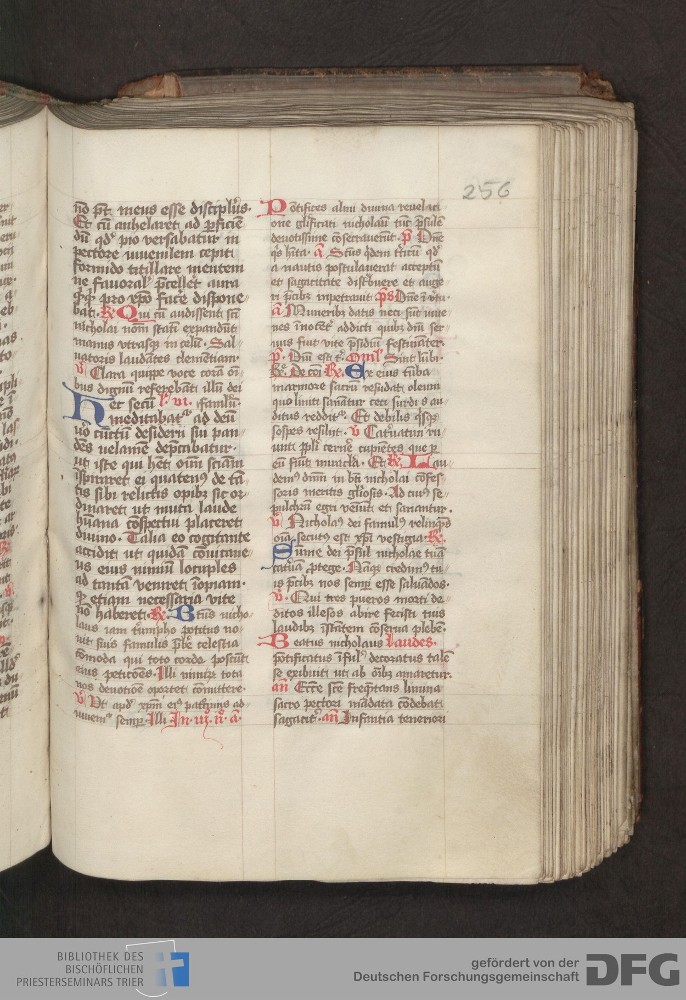 256
nō pōt meus esse discip̄lus.
Et cū anhelaret ad perficiē
dū qd̓ pio versabatur in
pectore iuuenilem cepit
formido titillare mentem
ne fauoral' p̄celleret aura
q̓sq̓ pro xp̄o face dispone
bat. R̄ Qui cū audissent sci
nicholai nom̄ statī expandūt
manus vtrasq; in celū. Sal
uatoris laudātes clementiam.
v̓ Clara quippe voce corā oī
bus dignū referebāt illū dei
Hec secū l̄ vi. famulū.
meditabat̓ ad deū
cunctū desiderii sui pan
dēs velamē dep̄cabatur.
ut iste qui h̄et om̄ sciām
ispiraret ei quatenus de tā
tis sibi relictis opib; sic or
dinaret ut nulla laude
hūana cōspectui placeret
diuino. Talia eo cogitante
accidit ut quidā cōuicane
us eius nimiū locuples
ad tantā veniret īopiam.
q̓ etiam necessaria vite
nō haberet. R̄ Btūs nicho
laus iam triumpho potitus no
uit suis famulis p̄bere celestia
cōmoda qui toto corde poscūt
eius peticōes. Illi nimirū tota
nos deuotiōe oportet cōmittere
v̓ Ut apd̓ xp̄m eius patrciniis ad
iuuem̓ semp. Illi In iii n̓ a
Pōtifices almi diuina reuelati
one glificati nicholaū tūc p̄sulē
deuotissime cōsecrauerūt. p̄ Dn̄e
q̓s hita. a Scūs q̓dem triticū qd̓
a nautis postulauerat acceptū
et sagacitate distribuere et auge
ri p̄cib; impetrauit p̄s Dn̄e ī v̓tu.
a Muneribz datis neci sūt iuue
nes inocēt addicti quib; dm̄ ser
uus fuit vite p̄sidiū festināter
p̄. Dn̄i est t̓. Omil̓ Sint lūbi.
R̄. De cōi R̄. Ex eius tūba
marmore sacrū resudat oleum
quo liniti sanātur ceci surdis au
ditus reddit̓. Et debilis q̓sq;
sospes resilit. v̓ Cateruatim ru
unt ppl̓i cernē cupiētes que p
eū fiūt mirac̄la. Et R̄ Lau
dem̓ dn̄m in bt̄i nicholai cōfes
soris meritis gl̓iosis. Ad cui̓ se
pulchrū egri veniūt et sanantur.
v̓ Nicholaus dei famulus relinq̓ns
oīa secutus est xp̄i vestigia R̄.
Summe dei p̄sul nicholae tuā
cateruā protege. Nāq; credim̓ tu
is p̄cib; nos semp esse saluādos.
v̓. Qui tres pueros morti de
ditos illesos abire fecisti tuis
laudib; īstātem cōserua plebē.
Beatus nicholaus laudes.
pōtificatus īful̓ decoratus tale
se exibuit ut ab oībz amaretur.
an̄ Ecc̄e sc̄e frequētans limina
sacro pectori mādata cōdebat
sagaciter. an̄ Infantia teneriori
BIBLIOTHEK DES
BISCHÖFLICHEN
PRIESTERSEMINARS TRIER
gefördert von der
Deutschen Forschungsgemeinschaft
DFG